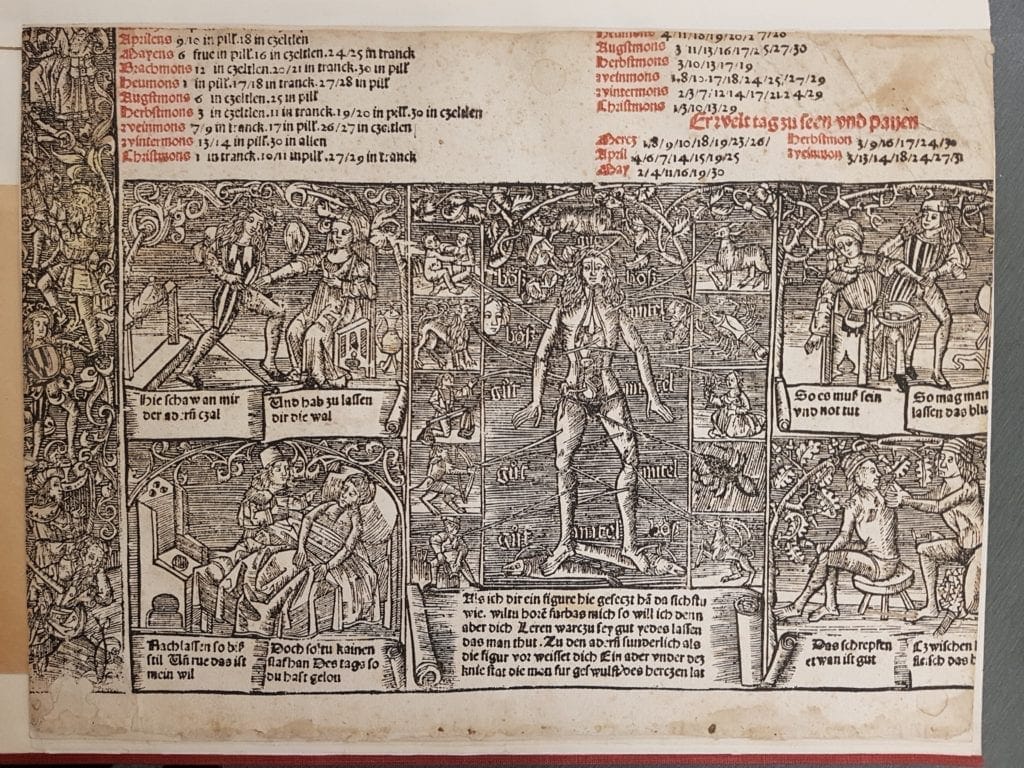 Aprilens 9/10 in pill.18 in czeltlen
Mayens 6 frue in pill.16 in czeltlen.24/25 in tranck
Brachmons 12 in czeltlen.20/21 in tranck.30 in pill
Heumons 1 in pill.17/18 in tranck.27/28 in pill
Augstmons 6 in czeltlen.25 in pill
Herbstmons 3 in czeltlen.11 in tranck.19/20 in pill.30 in czeltlen
Weinmons 7/9 in tranck.17 in pill.26/27 in czeltlen
Wintermons 13/14 in pill.30 in allen
Christmons 1 in tranck.10/11 in pill.27/29 in tranck
Heumons 4/11/18/19/20/27/28
Augstmons 3/11/13/16/17/25/27/30
Herbstmons 3/10/13/17/19
Weinmons 1.8/10.17/18/24/25/27/29
Wintermons 2/3/7/12/14/17/21.24/29
Christmons 1/3/10/13/29
Erwelt tag zu seen vnd pauen
Mercz 1/8/9/10/18/19/23/26/
April 4/6/7/14/15/19/25
May 2/4/11/16/19/30
Herbstmon 3/9/16/17/24/30
Weinmon 3/13/14/18/24/27/31
güt
böß
böß
mitel
böß
güt
mitel
güt
mitel
güt
mitel
böß
Hie schaw an mir
der ad.rñ czal
Und hab zu lassen
dir die wal
So es muß sein
vnd not tut
So mag man
lassen das blu
Nach lassen so biß
stil Uñ rue das ist
mein wil
Doch soltu kainen
slaf han Des tags so
du hast gelon
Als ich dir ein figure hie geseczt hã da sichstu
wie. wiltu horẽ furbas mich so will ich denn
aber dich Leren warczu sey gut yedes lassen
das man thut. Zu den ad.rñ sunderlich als
die figur vor weisset dich Ein ader vnder dez
knie stat die men fur geswulst des herczen lat
Das schrepffen
etwan ist gut
Czwischen